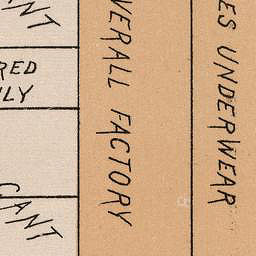 ANT
RED
LY
CANT
VERALL FACTORY
ES UNDERWEAR